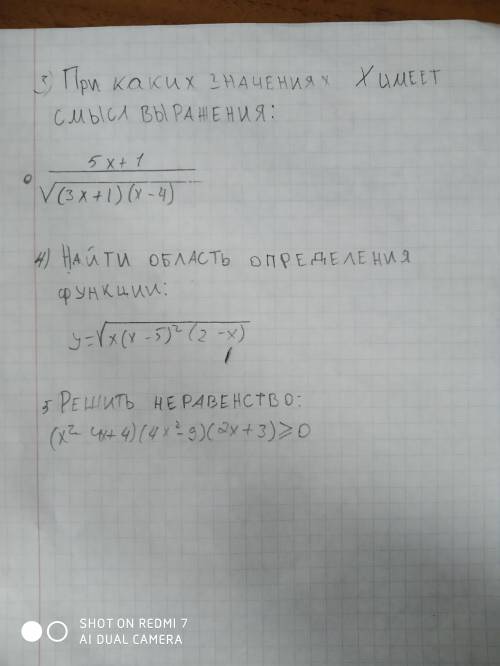 3) При каких значениях X имеет
смысл выражения:
5x+1
√(3x+1)(x-4)
4) Найти область определения
функции:
y=√x(x-5)²(2-x)
5 Решить неравенство:
(x²-4x+4)(4x²-9)(2x+3)≥0
SHOT ON REDMI 7
AI DUAL CAMERA